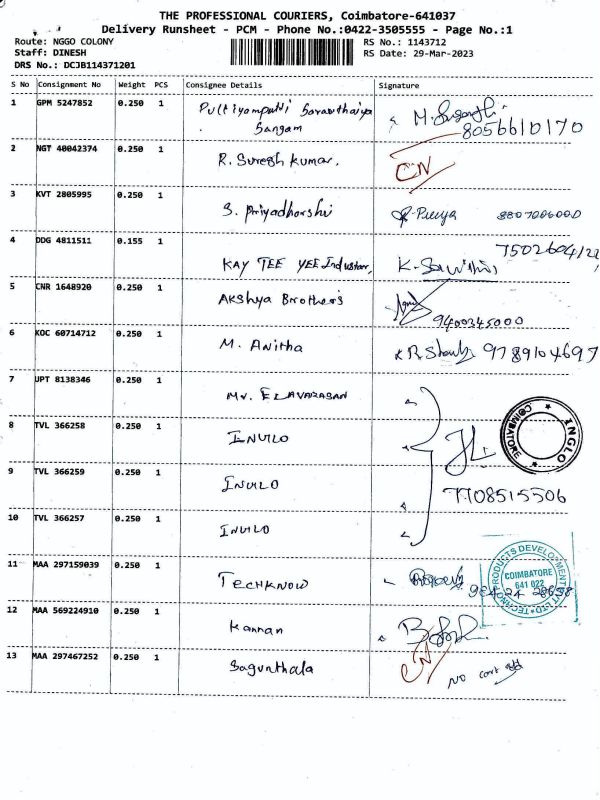 THE PROFESSIONAL COURIERS, Coimbatore-641037
Delivery Runsheet - PCM - Phone No.:0422-3505555 - Page No.:1
Route: NGGO COLONY
Staff: DINESH
DRS No.: DCJB114371201
RS No.: 1143712
RS Date: 29-Mar-2023
S No Consignment No Weight PCS Consignee Details Signature
1 GPM 5247852 0.250 1 Sangam 8056610170
2 NGT 40042374 0.250 1 R. Suresh kumar. CN
3 KVT 2805995 0.250 1 S. Priyadharshi
4 DDG 4811511 0.155 1 KAY TEE YEE
5 CNR 1648920 0.250 1 Akshya Brothers 9400345000
6 KOC 60714712 0.250 1 M. Anitha 9789104697
7 UPT 8138346 0.250 1 Mr. ELAVARASAN
8 TVL 366258 0.250 1 INVILO
INGLO COIMBATORE
9 TVL 366259 0.250 1 INVILO 7708515506
10 TVL 366257 0.250 1 INVILO
11 MAA 297159039 0.250 1 TECHKNOW
PRODUCTS DEVELOPMENT
COIMBATORE
641 022
12 MAA 569224910 0.250 1 Kannan
13 MAA 297467252 0.250 1 Sagunthala CN NO